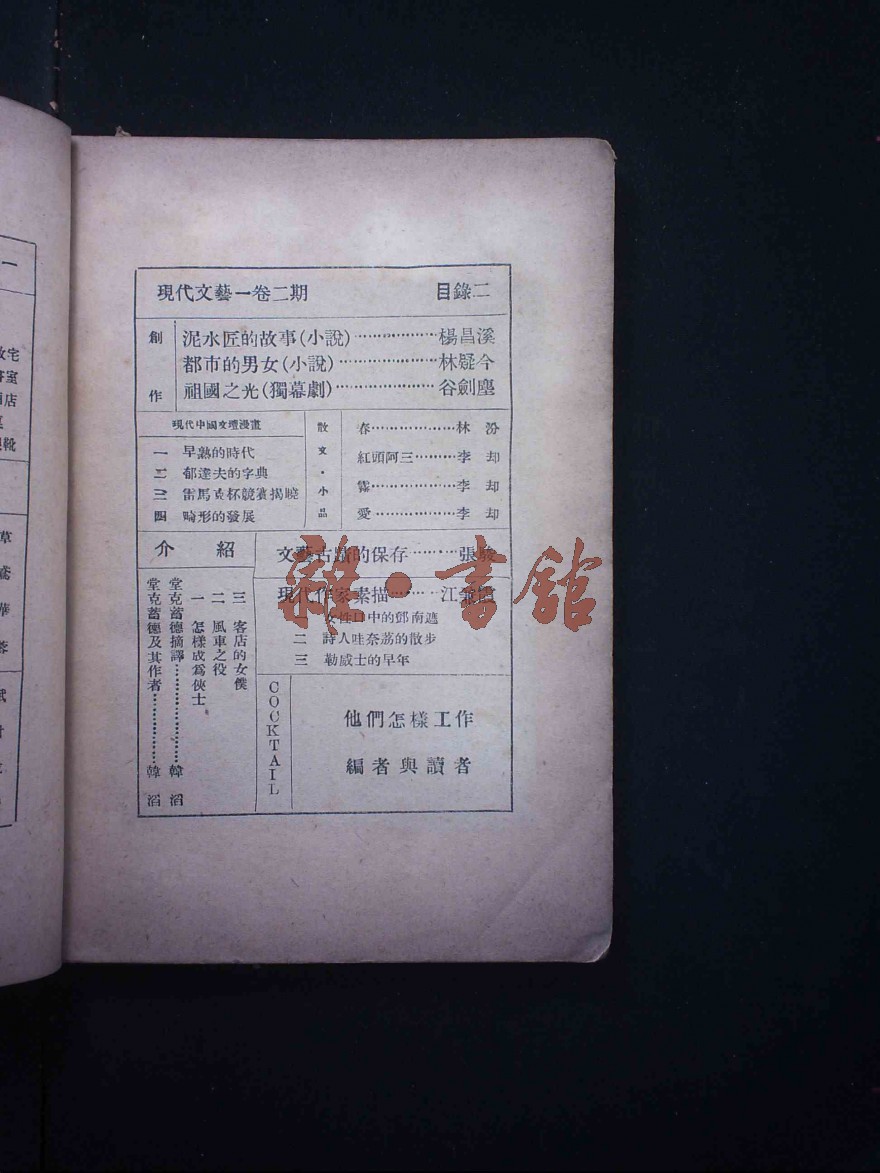 現代文藝一卷二期 目錄二
創作
泥水匠的故事(小說)………………楊昌溪
都市的男女(小說)…………………林疑今
祖國之光(獨幕劇)…………………谷劍塵
現代中國文壇漫畫
一 早熟的時代
二 郁達夫的字典
三 雷馬克杯競賽揭曉
四 畸形的發展
散文・小品
春……………林 汾
紅頭阿三………李 却
霧……………李 却
愛……………李 却
介紹
三 客店的女僕
二 風車之役
一 怎樣成爲俠士
堂克蓄德摘譯………………韓 滔
堂克蓄德及其作者…………韓 滔
文藝古蹟的保存………張
現代作家素描………江
一 女性口中的鄧南遮
二 詩人哇奈荔的散步
三 勒威士的早年
COCKTAIL
他們怎樣工作
編者與讀者
雜・書館
一
宅
室
店
靴
草
鳶
華
蓉